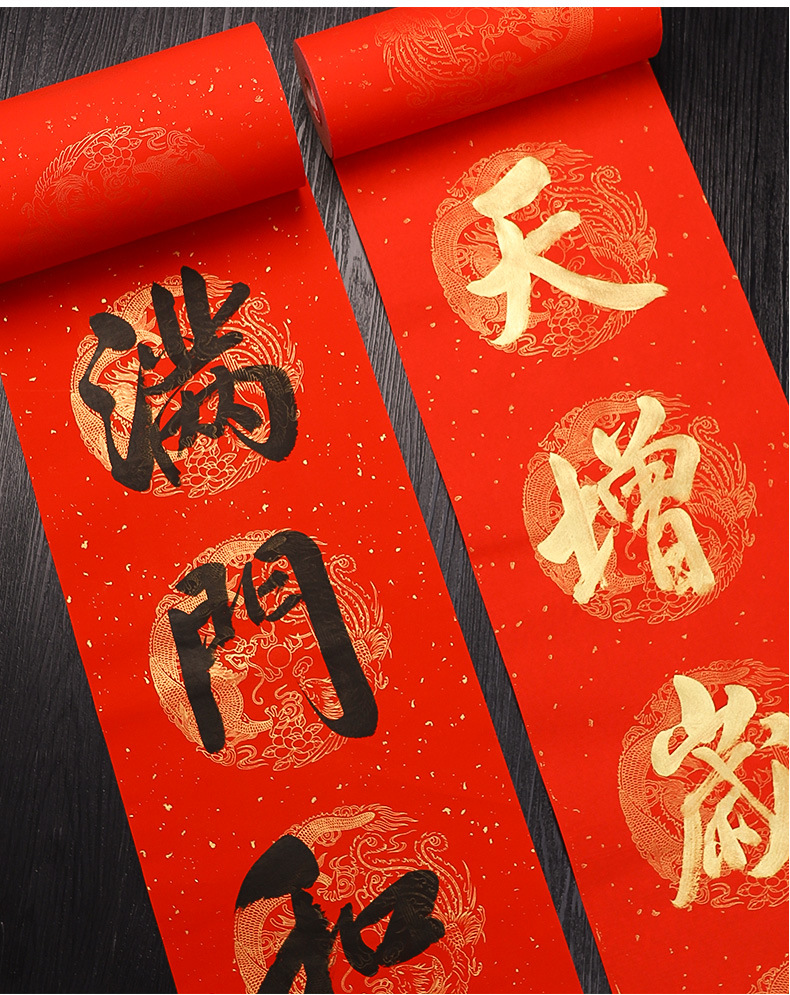 天增歲
滿門和